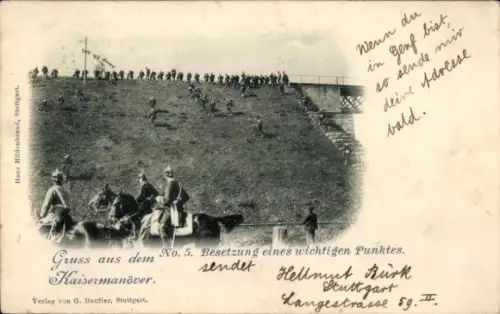 Wenn du
in Genf bist,
so sende mir
deine Adresse
bald.
Hans Hildenbrand, Stuttgart.
Gruss aus dem
Kaisermanöver.
No. 5. Besetzung eines wichtigen Punktes.
sendet
Hellmut Bürk
Stuttgart
Langestrasse 59. II.
Verlag von G. Haufler, Stuttgart.